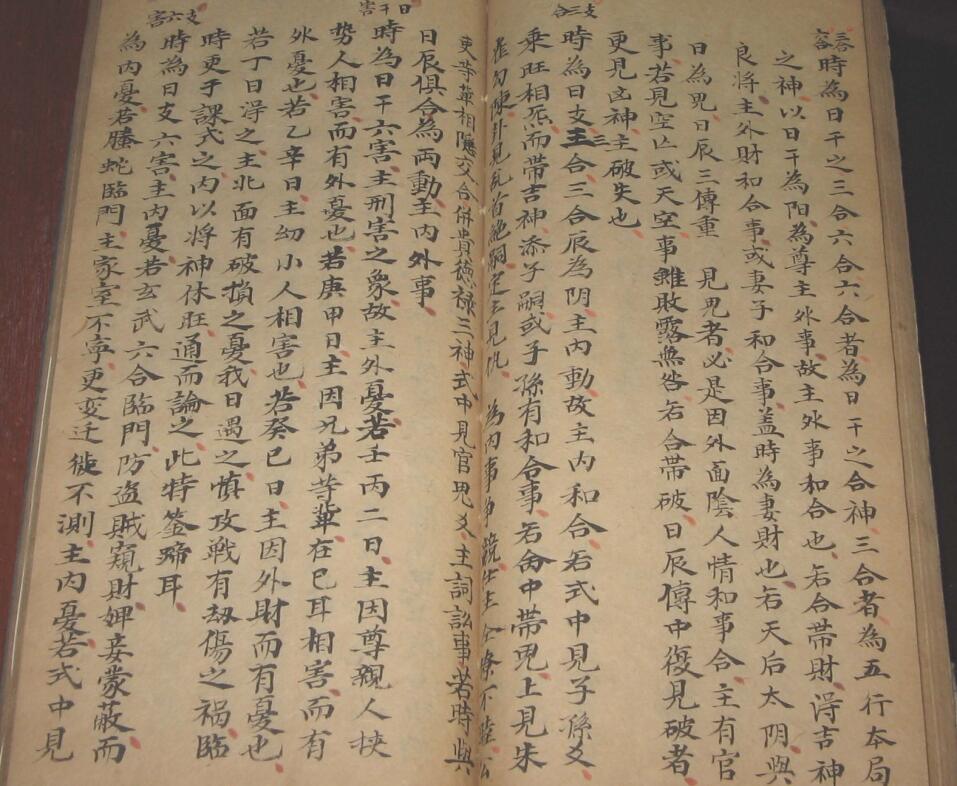 三合六合
時為日干之三合六合六合者為日干之合神三合者為五行本局
之神以日干為陽為尊主外事故主外事和合也若合帶財得吉神
良將主外財和合事或妻子和合事蓋時為妻財也若天后太阴與
日為鬼日辰三傳重 見鬼者必是因外面陰人情和事合主有官
事若見空亡或天空事雖敗露無咎若合帶破日辰傳中復見破者
更見凶神主破失也
支三合
時為日支三合三合辰為阴主内動故主内和合若式中見子孫爻
乘旺相炁而帶吉神添子嗣或子孫有和合事若合中帶鬼上見朱
雀勾陳 為内事
更等輩相 交合併貴德禄三神式中見官鬼爻主詞訟事若時與
日辰俱合為両動主内外事
日干害
時為日干六害主刑害之象故主外憂若壬丙二日主因尊親人挟
势人相害而有外憂也若庚甲日主因兄弟等輩在已耳相害而有
外憂也若乙辛日主幼小人相害也若癸已日主因外財而有憂也
若丁日得之主北面有破損之憂我日遇之慎攻戦有刼傷之禍臨
時更于課式之内以将神休旺通而論之此特筌蹄耳
支六害
時為日支六害主内憂若玄武六合臨門防盗賊窺財婢妾蒙蔽而
為内憂若螣蛇臨門主家室不寧更变迁徙不測主内憂若式中見